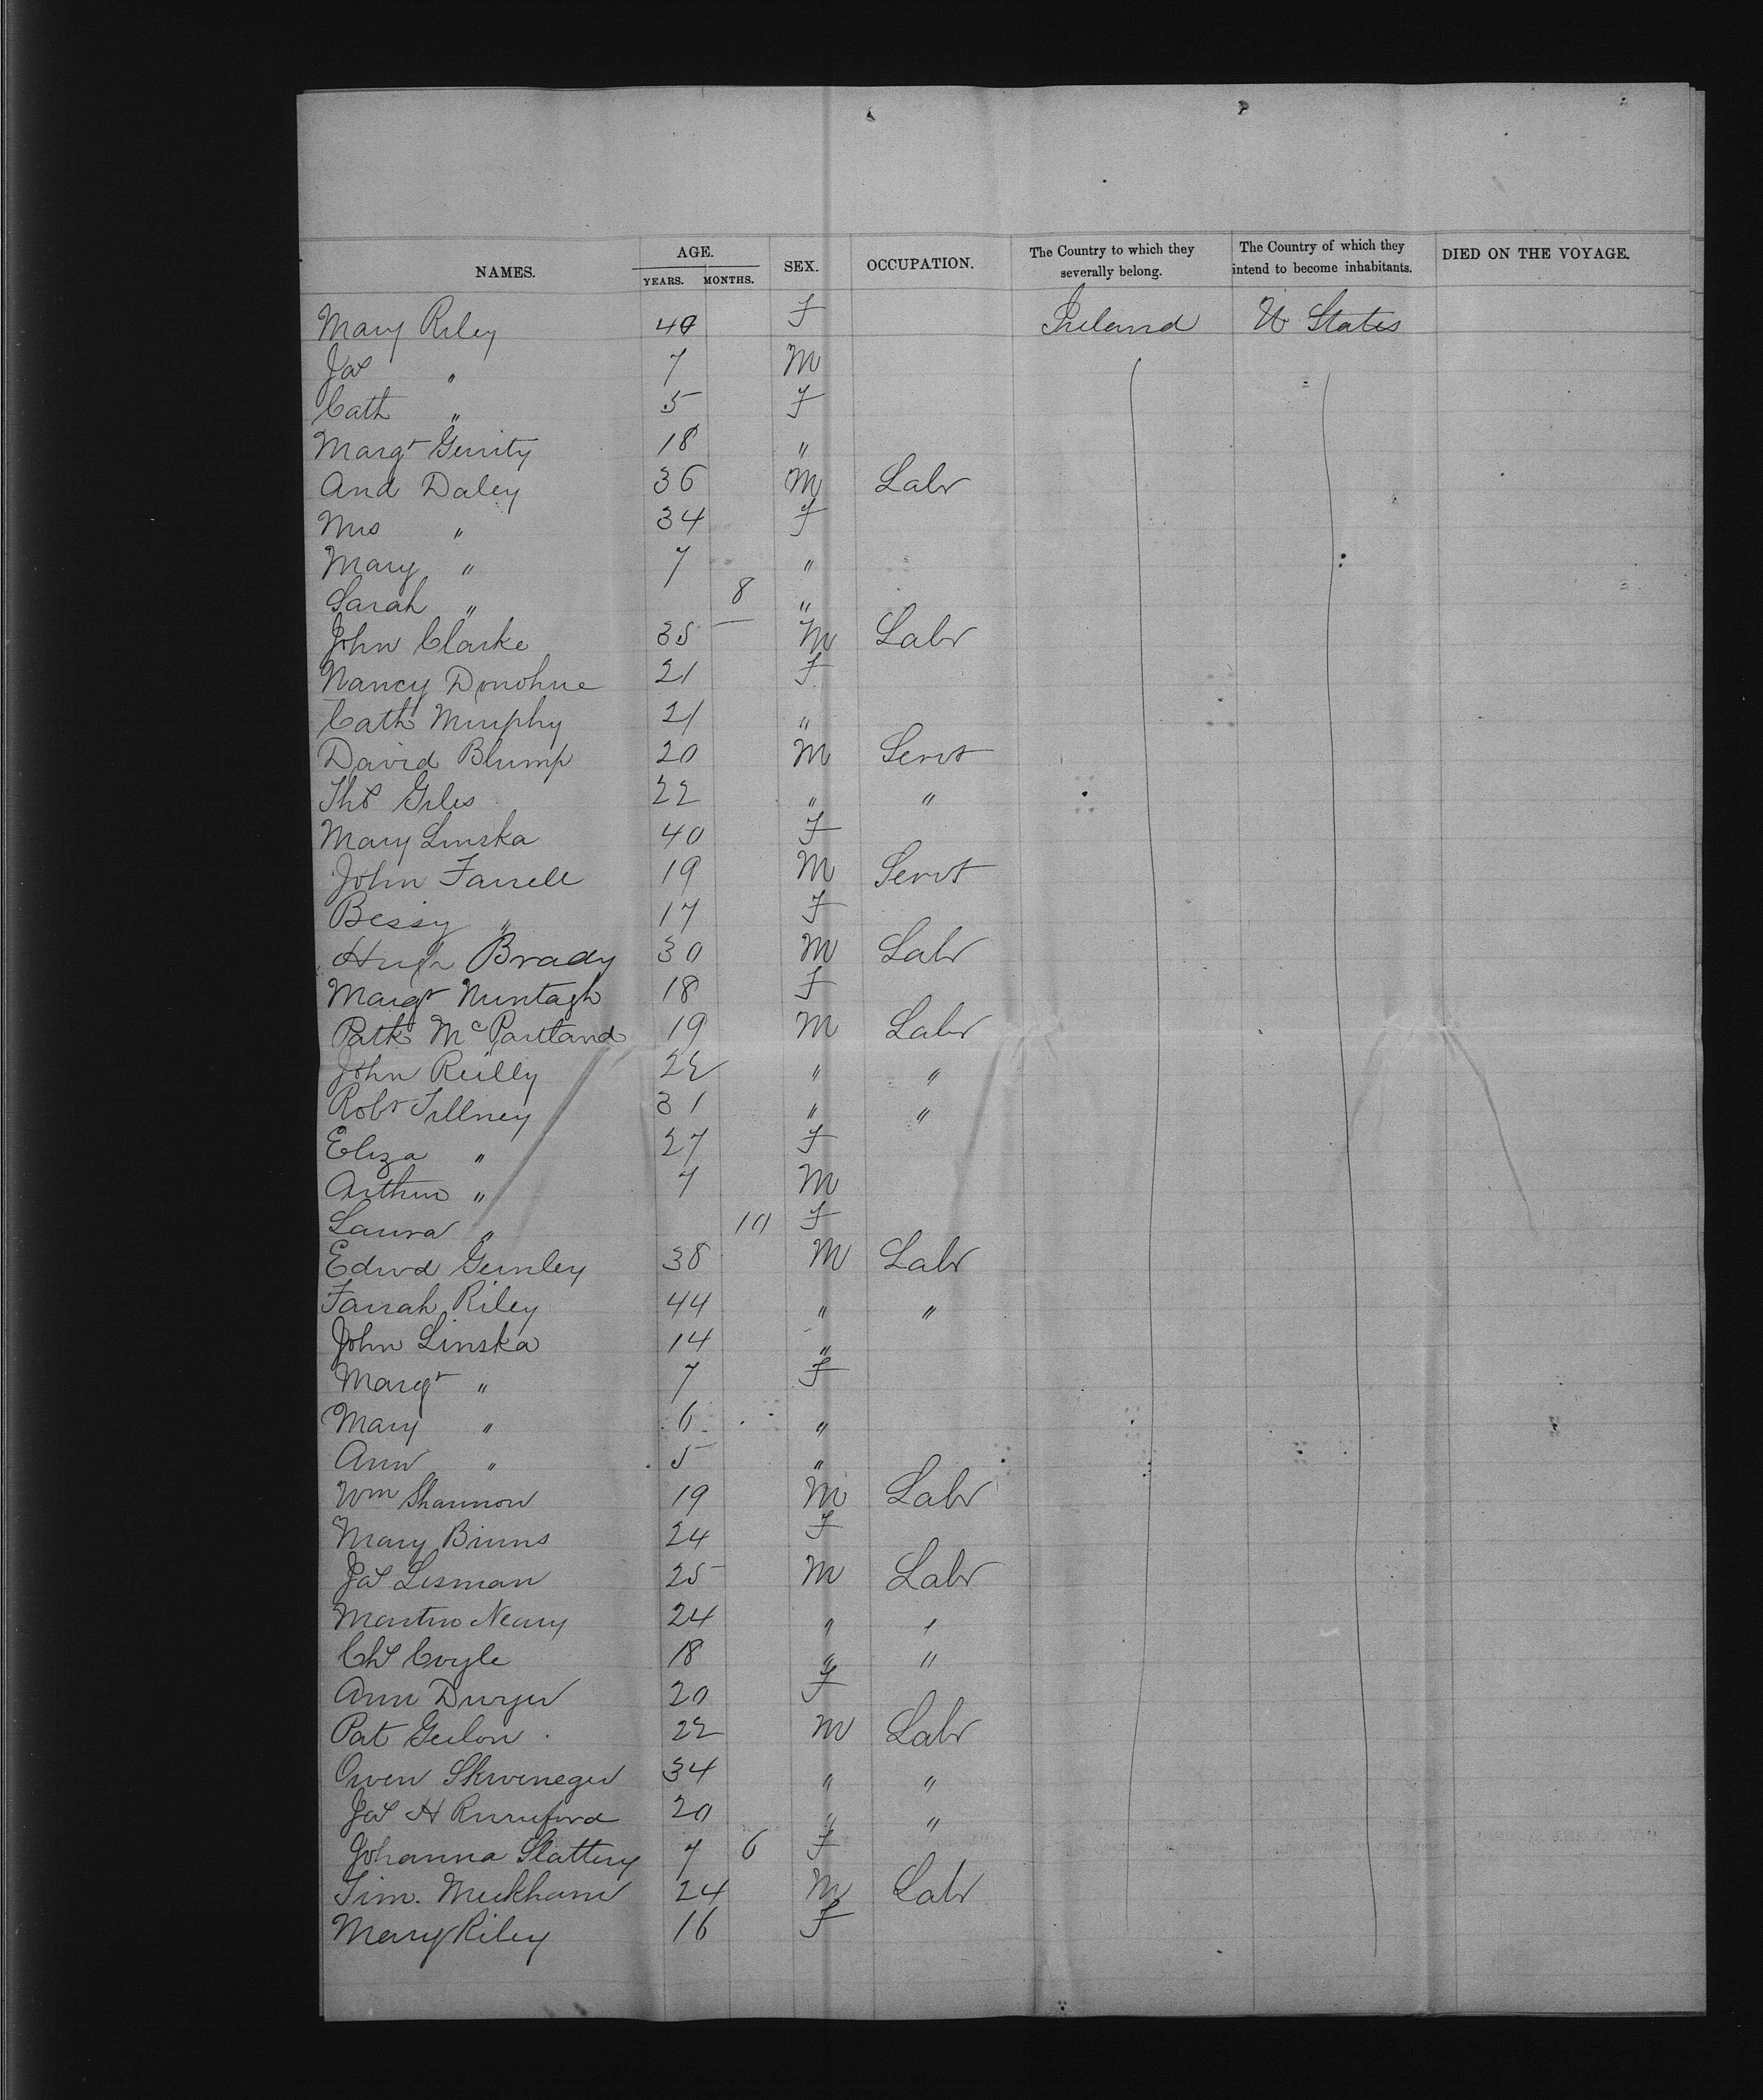 NAMES. AGE. YEARS. MONTHS. SEX. OCCUPATION. The Country to which they severally belong. The Country of which they intend to become inhabitants. DIED ON THE VOYAGE.
Mary Riley 40 F Ireland U States
Jas " 7 M
Cath " 5 F
Margt Gerrity 18 "
And Daley 36 M Labr
Mrs " 34 F
Mary " 7 "
Sarah " 8 "
John Clarke 35 — M Labr
Nancy Donohue 21 F
Cath Murphy 21 "
David Blump 20 M Servt
Thos Giles 22 " "
Mary Linska 40 F
John Farrell 19 M Servt
Bessy " 17 F
Hugh Brady 30 M Labr
Margt Muntagh 18 F
Patk McPartland 19 M Labr
John Reilly 22 " "
Robt Tillney 31 " "
Eliza " 27 F
Arthur " 7 M
Laura " 10 F
Edwd Gernley 38 M Labr
Farrah Riley 44 " "
John Linska 14 "
Margt " 7 F
Mary " 6 "
Ann " 5 "
Wm Shannon 19 M Labr
Mary Binns 24 F
Jas Lisman 25 M Labr
Martin Neary 24 " "
Chs Coyle 18 " "
Ann Dwyer 20 F
Pat Geelon 22 M Labr
Owen 34 " "
Jas H Rumford 20 " "
Johanna Slattery 7 6 F
Tim. Meekham 24 M Labr
Mary Riley 16 F